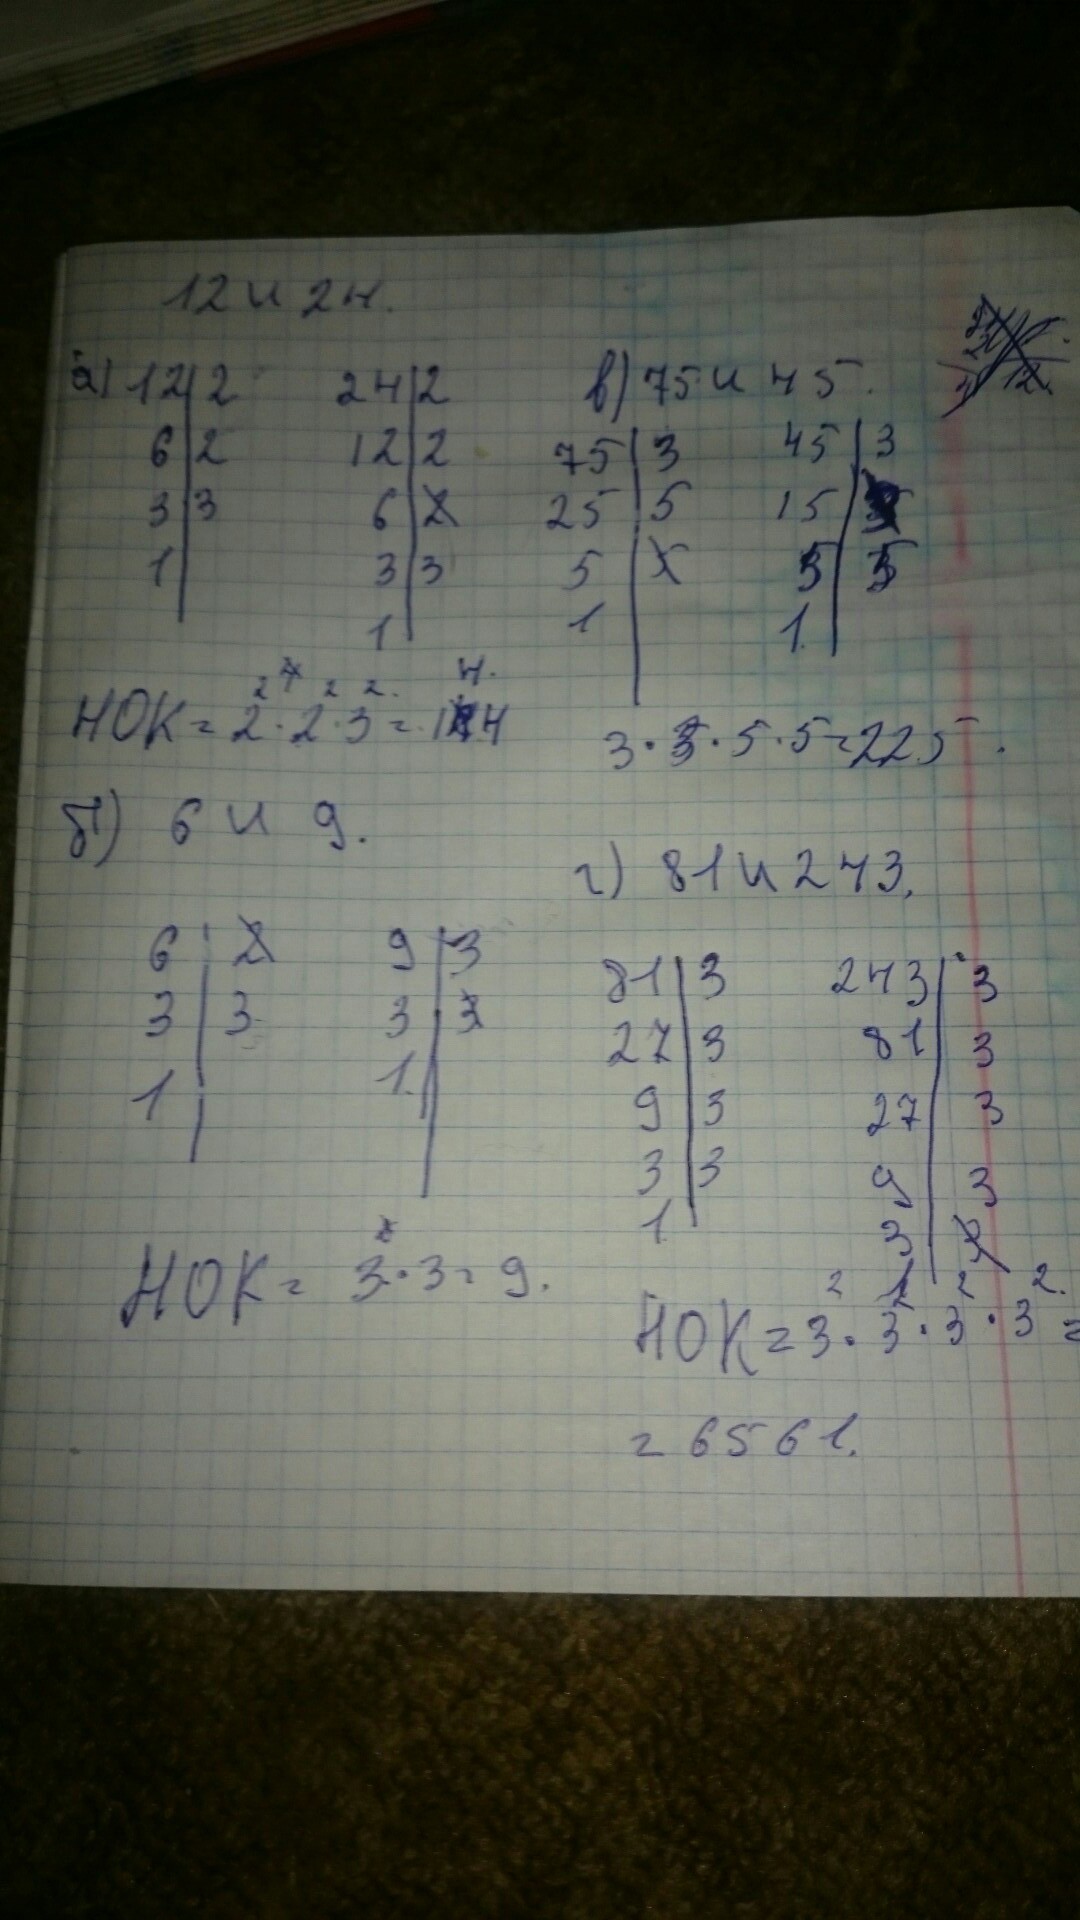 12 и 24.
а) 12 | 2
6 | 2
3 | 3
1
24 | 2
12 | 2
6 | 2
3 | 3
1
НОК = 2² · 2² · 3² = 144
б) 6 и 9.
6 | 2
3 | 3
1
9 | 3
3 | 3
1
НОК = 3 · 3 = 9.
в) 75 и 45.
75 | 3
25 | 5
5 | 5
1
45 | 3
15
5 | 5
1
3 · 3 · 5 · 5 = 225.
г) 81 и 243.
81 | 3
27 | 3
9 | 3
3 | 3
1
243 | 3
81 | 3
27 | 3
9 | 3
3 | 3
НОК = 3² · 3² · 3² · 3² =
= 6561.